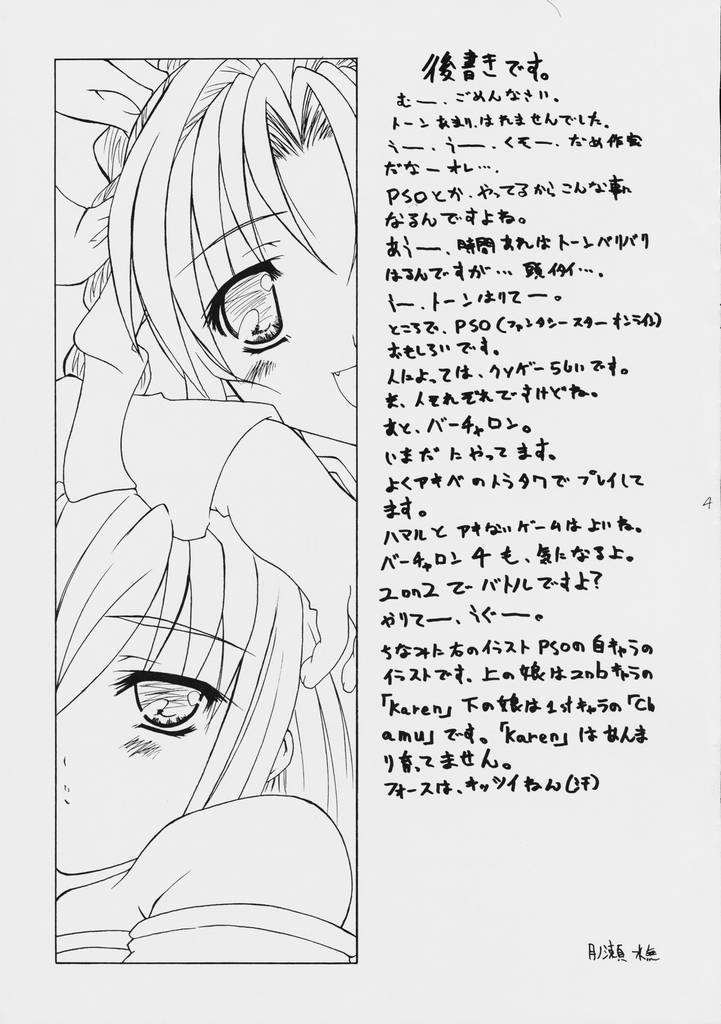 後書きです。
むー、ごめんなさい。
トーンあまりはれませんでした。
うー、うー、くそー、だめ作家
だなーオレ…。
PSOとか、やってるからこんな事に
なるんですよね。
あうー、時間あればトーンバリバリ
はるんですが… 頭イタイ…。
うー、トーンはりてー。
ところで、PSO(ファンタシースターオンライン)
おもしろいです。
人によっては、クソゲーらしいです。
ま、人それぞれですけどね。
あと、バーチャロン。
いまだにやってます。
よくアキバのトラタワでプレイして
ます。
ハマルとアキないゲームはよいね。
バーチャロン4も、気になるよ。
2on2でバトルですよ?
やりてー、うぐー。
ちなみに右のイラストPSOの自キャラの
イラストです、上の娘は2ndキャラの
「Karen」下の娘は1stキャラの「Ch
amu」です。「Karen」はあんま
り育ってません。
フォースは、キッツイねん(汗)
4